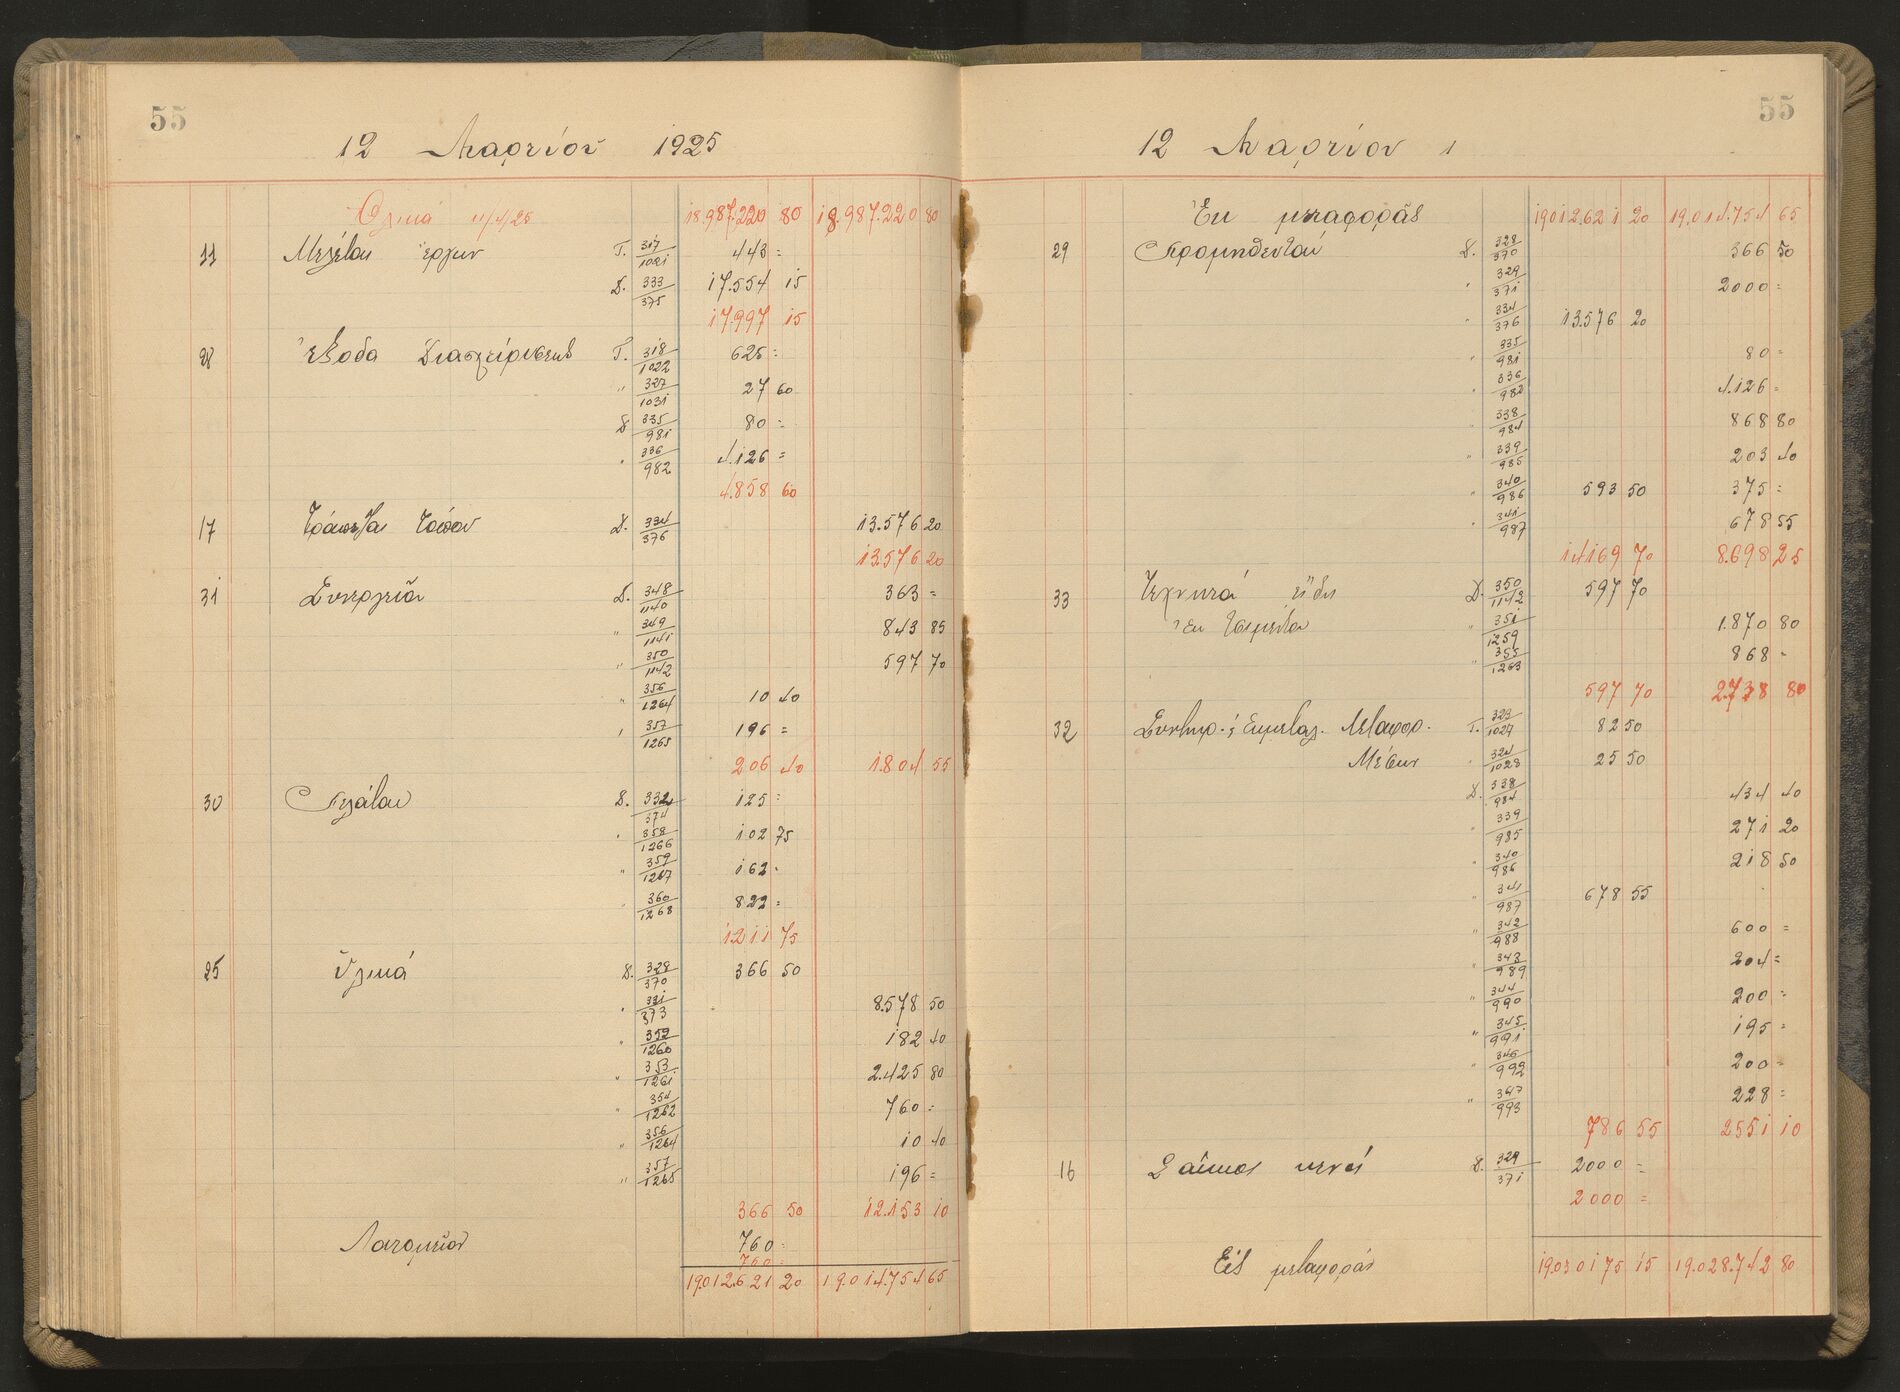 55
12 Μαρτίου 1925
Ολικά 11/4/25 18.987.220 80 18.987.220 80
11 Μελέται έργων Γ. 317/1021 443 =
Δ. 333/375 17.554 15
17.997 15
28 Έξοδα Διαχειρίσεως Γ. 318/1022 625 =
" 327/1031 27 60
Δ 335/981 80 =
" 336/982 4.126 =
4.858 60
17 Τράπεζαι Δ. 334/376 13.576 20
13.576 20
31 Συνεργεία Δ. 348/1140 363 =
" 349/1141 843 85
" 350/1142 597 70
" 356/1264 10 40
" 357/1265 196 =
206 40 1.804 55
30 Πελάται Δ. 332/374 125 =
" 358/1266 102 75
" 359/1267 162 =
" 360/1268 822 =
1211 75
25 Υλικά Δ. 328/370 366 50
" 331/373 8.578 50
" 352/1260 182 40
" 353/1261 2.425 80
" 354/1262 760 =
" 356/1264 10 40
" 357/1265 196 =
366 50 12.153 10
Λατομείον 760 =
760 =
19.012.621 20 19.014.754 65
55
12 Μαρτίου 1
Εκ μεταφοράς 19012.621 20 19.014.754 65
29 Προμηθευταί Δ. 328/370 366 50
" 329/371 2000 =
" 334/376 13.576 20
" 335/981 80 =
" 336/982 4.126 =
" 338/984 868 80
" 339/985 203 40
" 340/986 593 50 375 =
" 341/987 678 55
14169 70 8.698 25
33 Τεχνητά είδη Δ. 350/1142 597 70
Εκ τσιμέντου " 351/1259 1.870 80
" 355/1263 868 -
597 70 2.738 80
32 Συντηρ. & Εκμεταλ. Μεταφορ. Γ. 323/1027 82 50
Μέσων " 324/1028 25 50
Δ. 338/984 434 40
" 339/985 271 20
" 340/986 218 50
" 341/987 678 55
" 342/988 600 =
" 343/989 204 =
" 344/990 200 =
" 345/991 195 =
" 346/992 200 =
" 347/993 228 =
786 55 2551 10
16 Σάκκοι κενοί Δ. 329/371 2000 =
2000 =
Εις μεταφοράν 19.030175 15 19.028.742 80